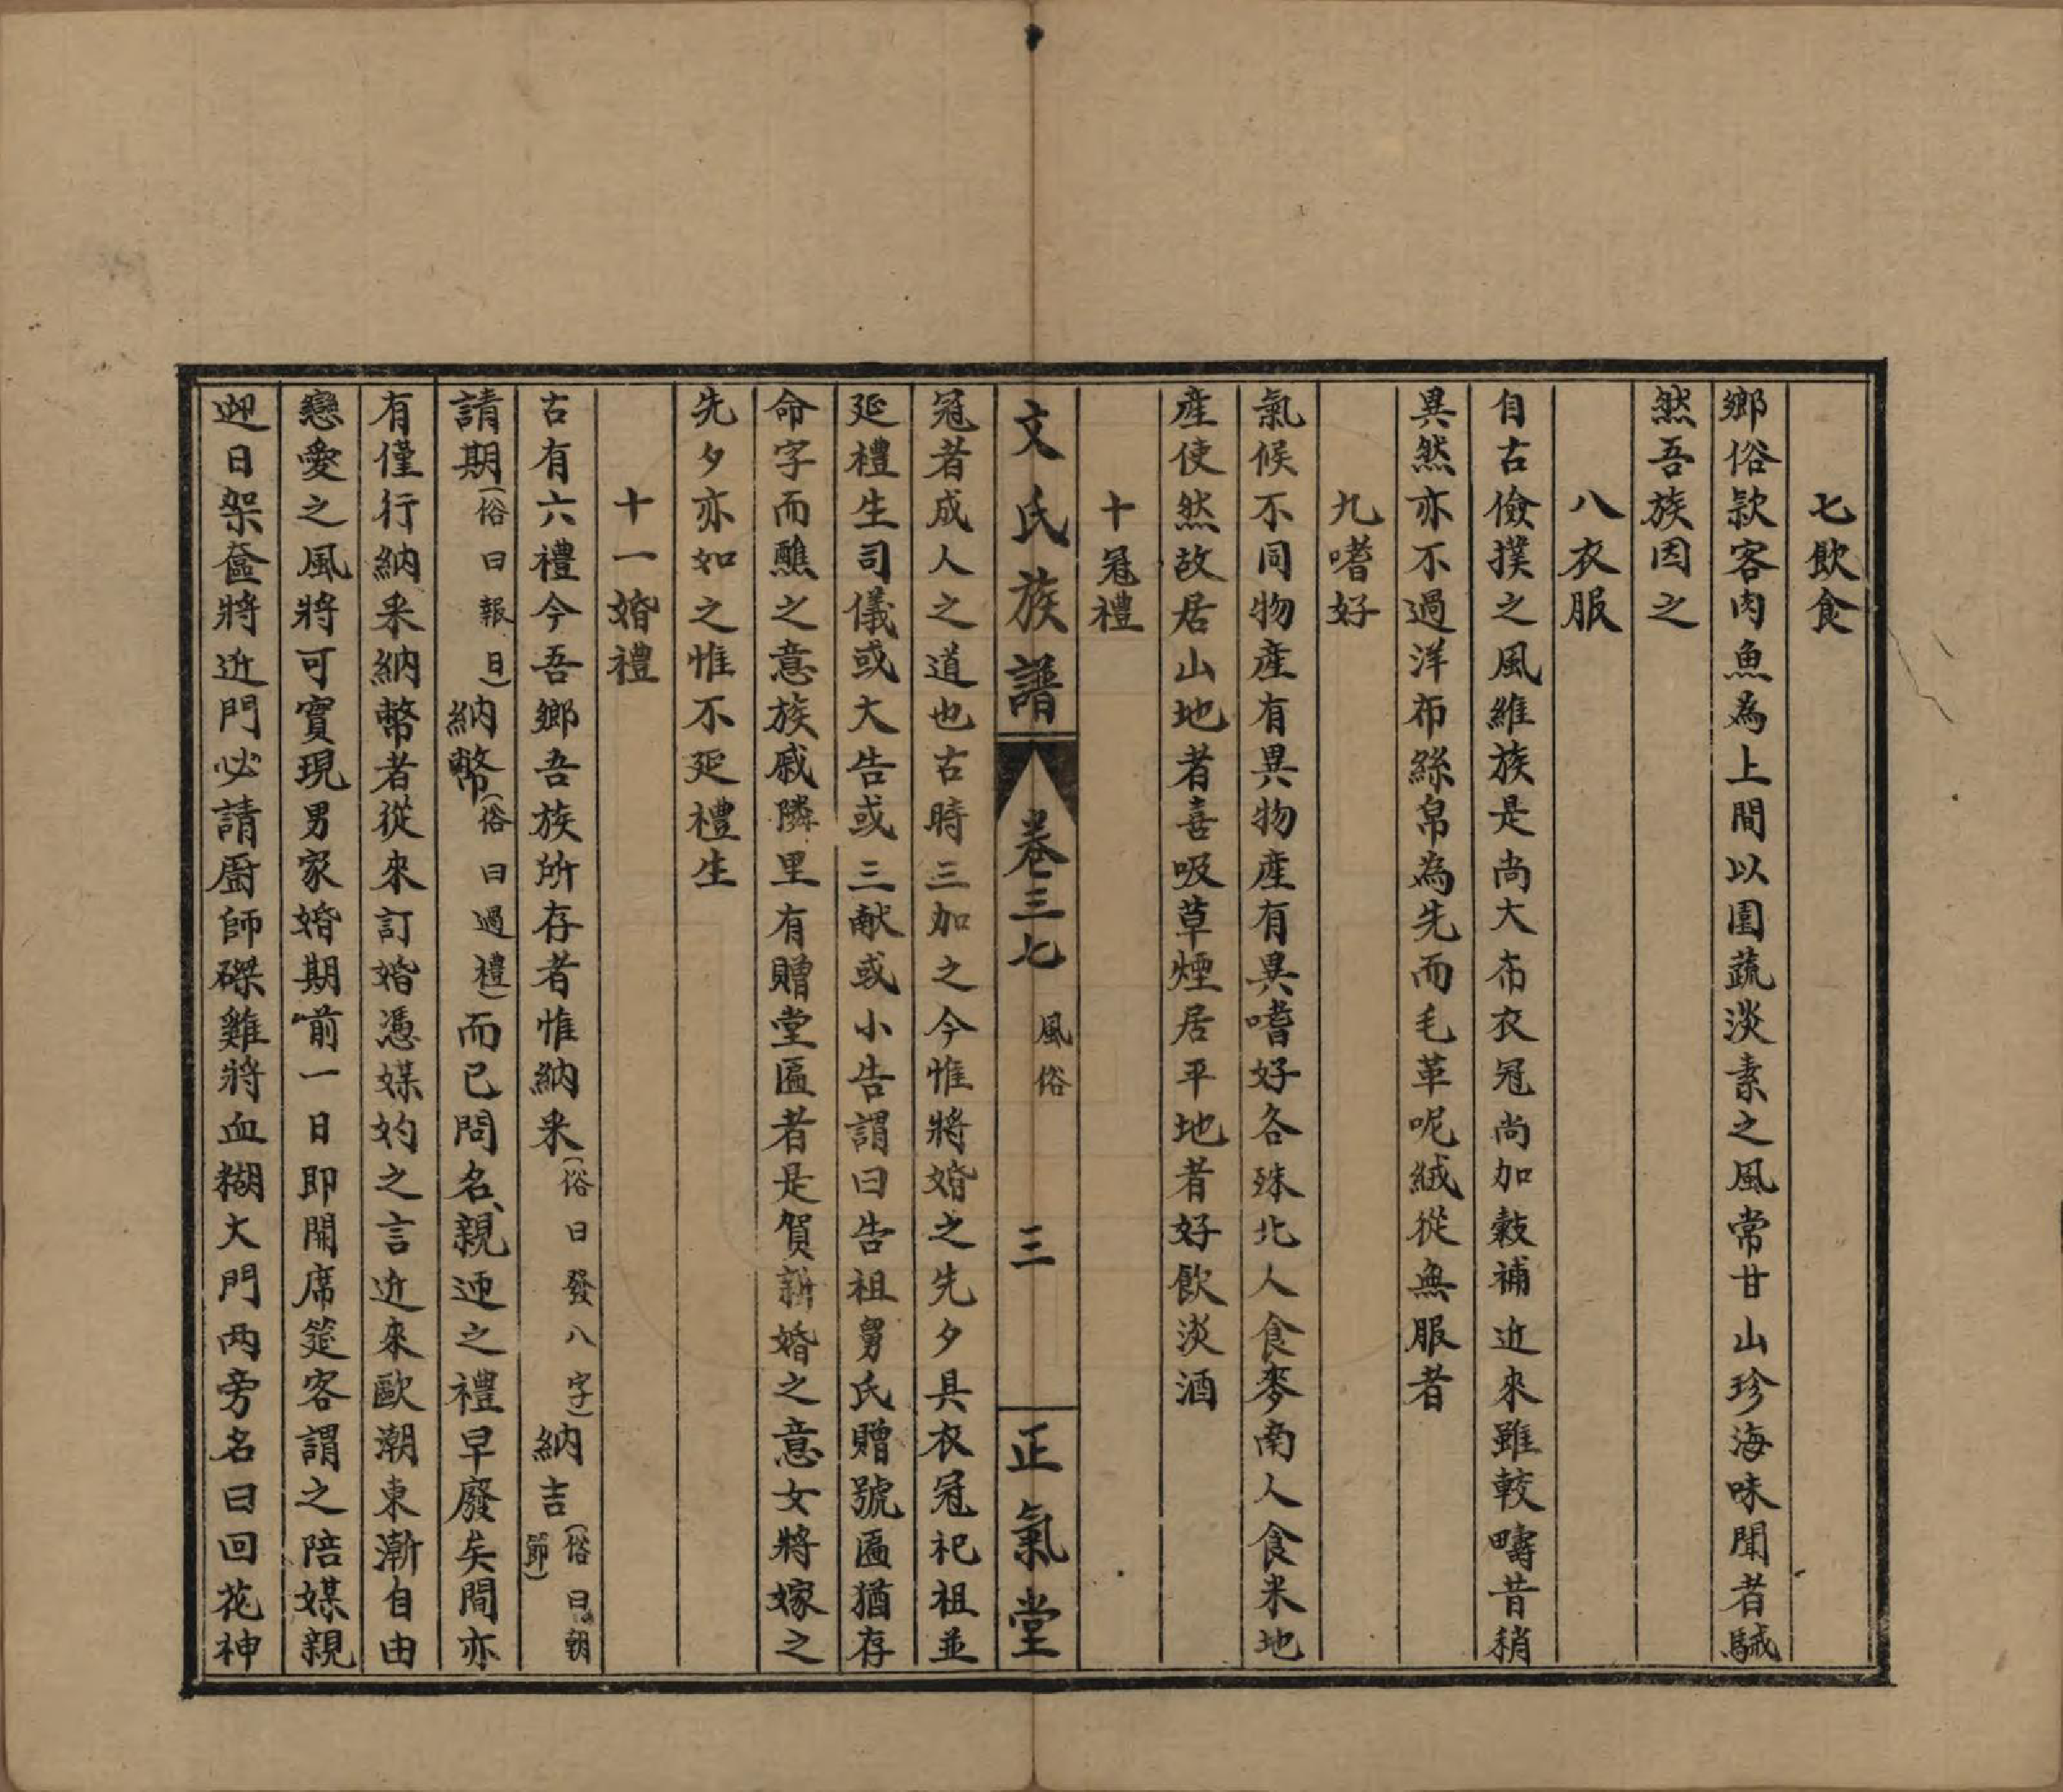 七飲食
鄉俗款客肉魚為上間以園蔬淡素之風常甘山珍海味聞者駴
然吾族因之
八衣服
自古儉撲之風維族是尚大布衣冠尚加敹補近來雖較疇昔稍
異然亦不過洋布絲帛為先而毛革呢絨從無服者
九嗜好
氣候不同物產有異物產有異嗜好各殊北人食麥南人食米地
產使然故居山地者喜吸草煙居平地者好飲淡酒
十冠禮
文氏族譜 卷三七 風俗 三 正氣堂
冠者成人之道也古時三加之今惟將婚之先夕具衣冠祀祖並
延禮生司儀或大告或三献或小告謂曰告祖舅氏贈號匾猶存
命字而醮之意族戚隣里有贈堂匾者是賀新婚之意女將嫁之
先夕亦如之惟不延禮生
十一婚禮
古有六禮今吾鄉吾族所存者惟納采(俗曰發八字)納吉(俗曰朝節)
請期(俗曰報日)納幣(俗曰過禮)而已問名、親迎之禮早廢矣間亦
有僅行納采納幣者從來訂婚憑媒妁之言近來歐潮東漸自由
戀愛之風將可實現男家婚期前一日即開席筵客謂之陪媒親
迎日架奩將近門必請廚師磔雞將血糊大門两旁名曰回花神